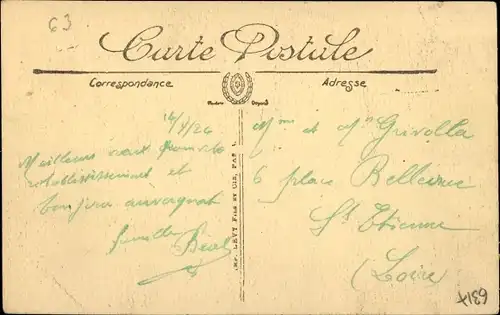 63
Carte Postale
Correspondance
Adresse
Meilleurs vœux prompte
rétablissement et
bonjour auvergnat
famille Béal
IMP. LÉVY FILS ET CIE, PARIS
Mme et Mr Grivolla
6 place Bellevue
St Etienne
(Loire)